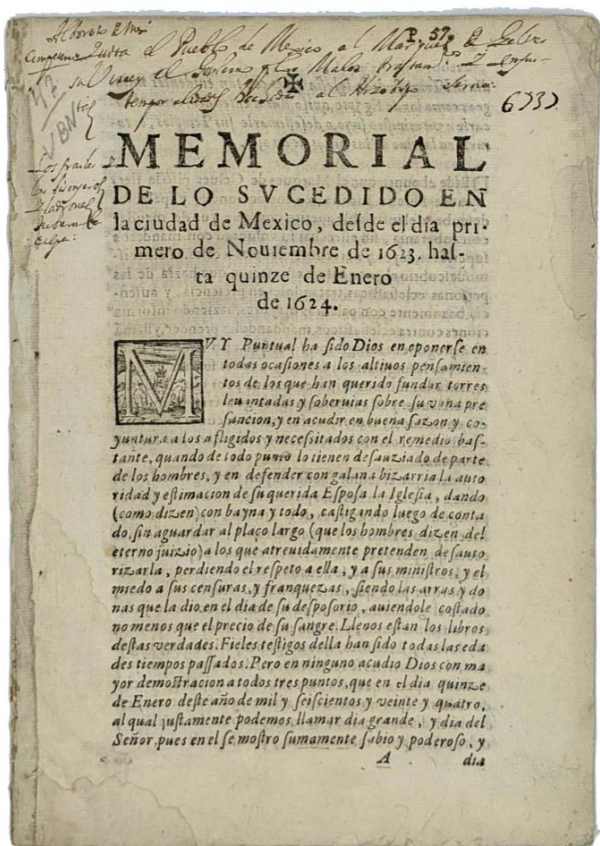 Quita el Pueblo de Mexico al Marques
P. 57
al Arzobpo Serna:
6737
VBN
Los frayles
MEMORIAL
DE LO SVCEDIDO EN
la ciudad de Mexico, deſde el dia pri-
mero de Nouiembre de 1623. haſ-
ta quinze de Enero
de 1624.
MVY Puntual ha ſido Dios en oponerſe en
todas ocaſiones a los altiuos penſamien-
tos de los que han querido fundar torres
leuantadas y ſoberuias ſobre ſu vana pre
ſuncion, y en acudir en buena ſazon y co-
yuntura a los afligidos y neceſsitados con el remedio baſ-
tante, quando de todo punto lo tienen deſauziado de parte
de los hombres, y en defender con galana bizarria la auto
ridad y eſtimacion de ſu querida Eſpoſa la Igleſia, dando
(como dizen) con bayna y todo, caſtigando luego de conta
do, ſin aguardar al plaço largo (que los hombres dizen del
eterno juizio) a los que atreuidamente pretenden deſauto
rizarla, perdiendo el reſpeto a ella, y a sus miniſtros, y el
miedo a ſus cenſuras, y franquezas, ſiendo las arras y do
nas que la dio en el dia de ſu deſpoſorio, auiendole coſtado
no menos que el precio de ſu ſangre. Llenos eſtan los libros
deſtas verdades. Fieles teſtigos della han ſido todas las eda
des tiempos paſſados. Pero en ninguno acudio Dios con ma
yor demoſtracion a todos tres puntos, que en el dia quinze
de Enero deſte año de mil y ſeiſcientos y veinte y quatro,
al qual juſtamente podemos llamar dia grande, y dia del
Señor, pues en el ſe moſtro ſumamente ſabio y poderoſo, y
A dia